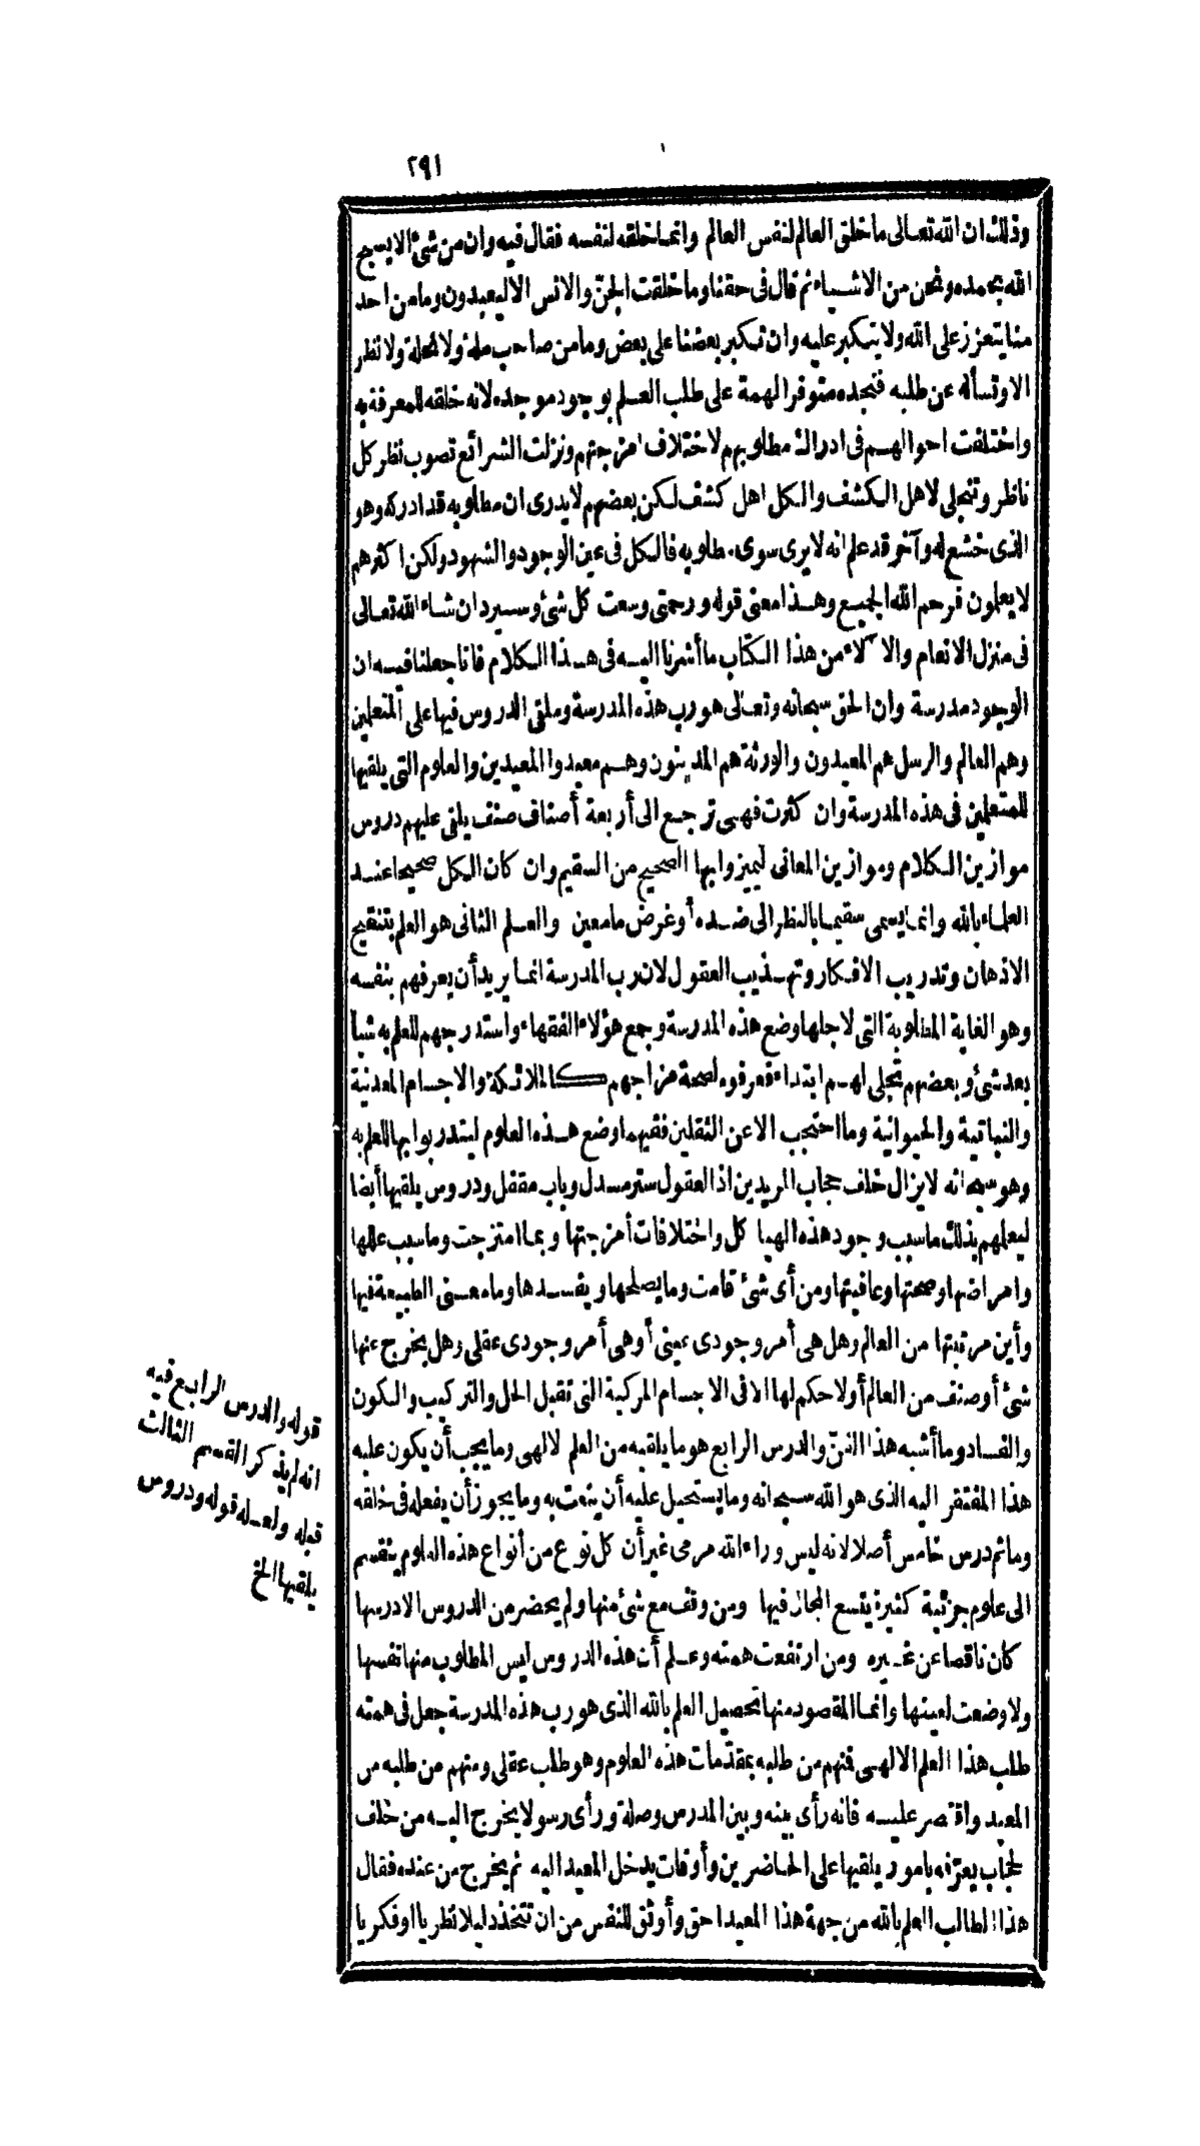 ٢٩١
وذلك ان الله تعالى ما خلق العالم لنفس العالم وانما خلقه لنفسه فقال فيه وان من شئ الا يسبح
الله بحمده ونحن من الاشياء ثم قال فى حقنا وما خلقت الجن والانس الا ليعبدون وما من احد
منا يتعزز على الله ولا يتكبر عليه وان تكبر بعضنا على بعض وما من صاحب ملة ولا نحلة ولا نظر
الا وتسأله عن طلبه فتجده متوفر الهمة على طلب العلم بوجود موجده لانه خلقه للمعرفة به
واختلفت احوالهم فى ادراك مطلوبهم لاختلاف امزجتهم ونزلت الشرائع تصوب نظر كل
ناظر وتتجلى لاهل الكشف والكل اهل كشف لكن بعضهم لا يدرى ان مطلوبه قد ادركه وهو
الذى خشع له وآخر قد علم انه لا يرى سوى مطلوبه فالكل فى عين الوجود والشهود ولكن اكثرهم
لا يعلمون فرحم الله الجميع وهذا معنى قوله ورحمتى وسعت كل شئ وسيرد ان شاء الله تعالى
فى منزل الانعام والآلاء من هذا الكتاب ما أشرنا اليه فى هذا الكلام فانا جعلنا فيه ان
الوجود مدرسة وان الحق سبحانه وتعالى هو رب هذه المدرسة وملقى الدروس فيها على المتعلمين
وهم العالم والرسل هم المعيدون والورثة هم المدينون وهم معيدوا المعيدين والعلوم التى يلقيها
للمتعلمين فى هذه المدرسة وان كثرت فهى ترجع الى أربعة أصناف صنف يلقى عليهم دروس
موازين الكلام وموازين المعانى ليميزوا بها الصحيح من السقيم وان كان الكل صحيحا عند
العلماء بالله وانما يسمى سقيما بالنظر الى ضده أو غرض ما معين والعلم الثانى هو العلم بتنقيح
الاذهان وتدريب الافكار وتهذيب العقول لان رب المدرسة انما يريد أن يعرفهم بنفسه
وهو الغاية المطلوبة التى لاجلها وضع هذه المدرسة وجمع هؤلاء الفقهاء واستدرجهم للعلم به شيأ
بعد شئ وبعضهم تجلى لهم ابتداء فعرفوه لصحة مزاجهم كالملائكة والاجسام المعدنية
والنباتية والحيوانية وما احتجب الا عن الثقلين ففيهما وضع هذه العلوم ليتدربوا بها للعلم به
وهو سبحانه لا يزال خلف حجاب المريدين اذ العقول ستر مسدل وباب مقفل ودروس يلقيها أيضا
ليعلمهم بذلك ما سبب وجود هذه الهيا كل واختلافات أمزجتها وبما امتزجت وما سبب عللها
وامراضها وصحتها وعافيتها ومن أى شئ قامت وما يصلحها ويفسدها وما معنى الطبيعة فيها
وأين مرتبتها من العالم وهل هى أمر وجودى عينى أو هى أمر وجودى عقلى وهل يخرج عنها
شئ أو صنف من العالم أو لا حكم لها الا فى الاجسام المركبة التى تقبل الحل والتركيب والكون
والفساد وما أشبه هذا الفنّ والدرس الرابع هو ما يلقيه من العلم الالهى وما يجب أن يكون عليه
هذا المفتقر اليه الذى هو الله سبحانه وما يستحيل عليه أن ينعت به وما يجوز أن يفعله فى خلقه
وما ثم درس خامس أصلا لانه ليس وراء الله مرمى غير أن كل نوع من أنواع هذه العلوم ينقسم
الى علوم جزئية كثيرة يتسع المجال فيها ومن وقف مع شئ منها ولم يحضر من الدروس الا درسها
كان ناقصا عن غيره ومن ارتفعت همته وعلم أن هذه الدروس ليس المطلوب منها نفسها
ولا وضعت لعينها وانما المقصود منها تحصيل العلم بالله الذى هو رب هذه المدرسة جعل فى همته
طلب هذا العلم الالهى فمنهم من طلبه بمقدّمات هذه العلوم وهو طلب عقلى ومنهم من طلبه من
المعيد واقتصر عليه فانه رأى بينه وبين المدرس وصلة ورأى رسولا يخرج اليه من خلف
الحجاب يعرّفه بامور يلقيها على الحاضرين وأوقات يدخل المعيد اليه ثم يخرج من عنده فقال
هذا الطالب العلم بالله من جهة هذا المعيد احق وأوثق للنفس من ان تتخذ دليلا نظريا او فكريا
قوله والدرس الرابع فيه
انه لم يذكر القسم الثالث
قبله ولعله قوله ودروس
يلقيها الخ